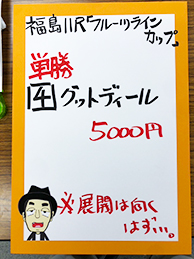 福島11R「フルーツライン
カップ」
単勝
4 グットディール
5000円
※展開は向く
はず…。